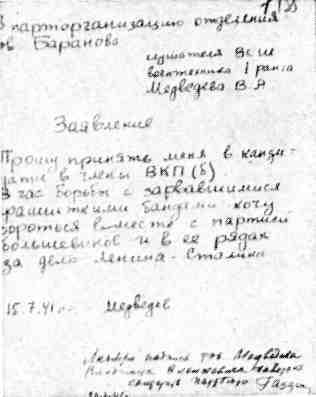 В парторганизацию отделения
тов Баранова
слушателя ВСШ
воентехника I ранга
Медведева В.А
Заявление
Прошу принять меня в канди-
даты в члены ВКП(б)
В час борьбы с зарвавшимися
фашисткими бандами хочу
бороться вместе с партией
большевиков и в ее рядах
за дело Ленина-Сталина
15.7.41 Медведев
подпись тов Медведева